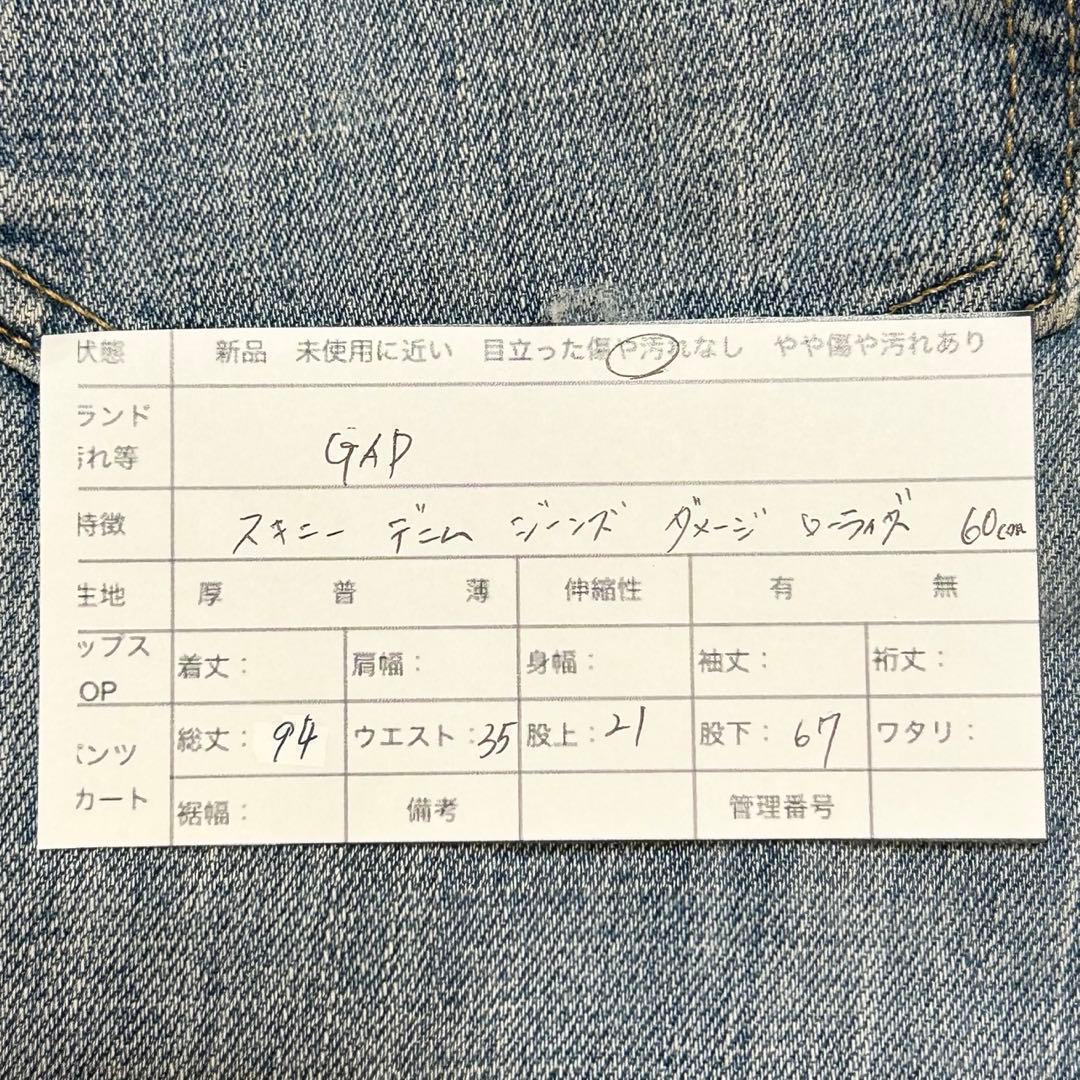 状態 新品 未使用に近い 目立った傷や汚れなし やや傷や汚れあり
ランド
汚れ等 GAP
特徴 スキニー デニム ジーンズ ダメージ ローライズ 60cm
生地 厚 普 薄 伸縮性 有 無
ップス
OP 着丈： 肩幅： 身幅： 袖丈： 裄丈：
パンツ 総丈：94 ウエスト：35 股上：21 股下：67 ワタリ：
カート 裾幅： 備考 管理番号